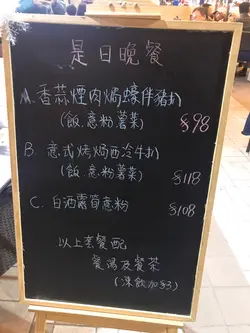 是日晚餐
A. 香蒜煙肉焗蠔伴豬扒
(飯.意粉.薯菜)
$98
B. 意式烤焗西冷牛扒
(飯.意粉.薯菜)
$118
C. 白酒露筍意粉
$108
以上套餐配
餐湯及餐茶
(凍飲加$3)